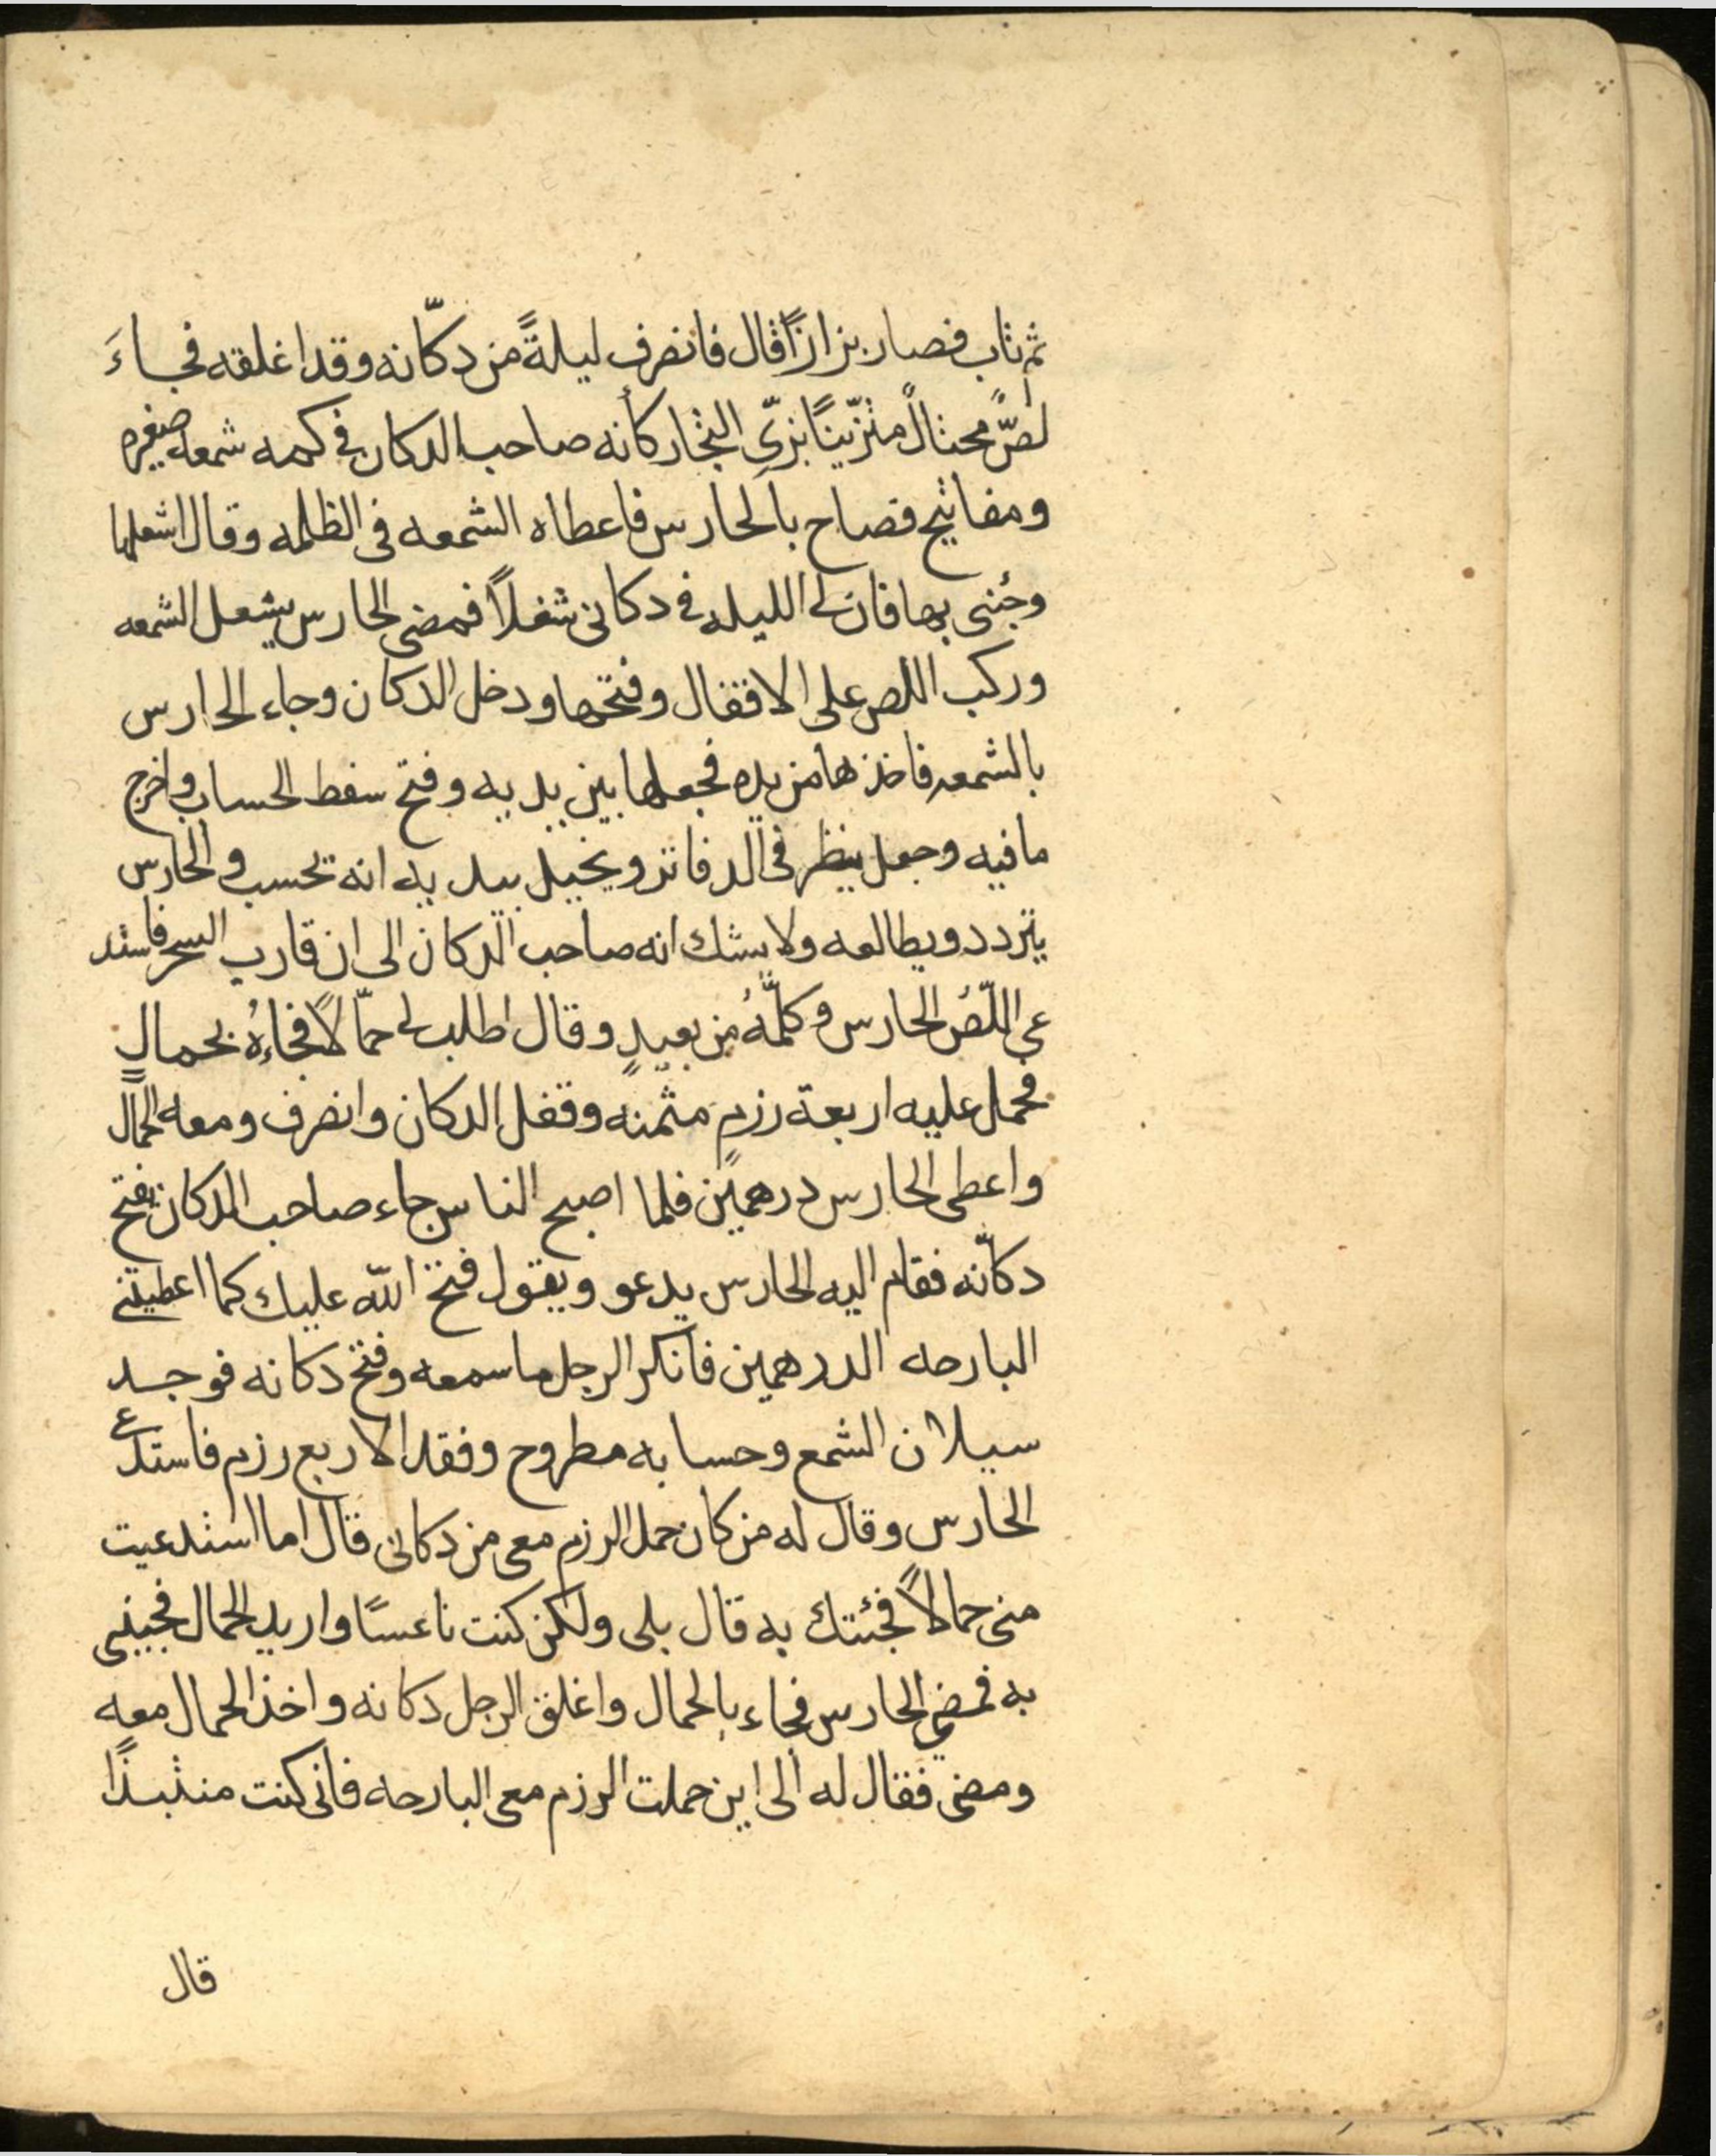 ثم تاب فصار بزازًا قال فانصرف ليلةً من دكّانه وقد اغلقه فجاءَ
لصٌّ محتالٌ متزّينًا بزىّ التجار كأنه صاحب الدكان فى كمه شمعه صغيره
ومفاتيح فصاح بالحارس فاعطاه الشمعه فى الظلمه وقال اشعلها
وجُنى بها فان لى الليله فى دكانى شغلاً فمضى الحارس يشعل الشمعه
وركب اللص على الاقفال وفتحها ودخل الدكان وجاء الحارس
بالشمعه فاخذها من يده فجعلها بين يديه وفتح سفط الحساب واخرج
ما فيه وجعل ينظر فى الدفاتر ويخيل بيديه انه يحسب والحارس
يتردد ويطالعه ولا يشك انه صاحب الدكان الى ان قارب السحر فاستد
عى اللّصُ الحارس وكلّمهُ من بعيدٍ وقال اطلب لى حمّالاً فجاءهُ بحمالٍ
فحمل عليه اربعة رزمٍ مثمنه وقفل الدكان وانصرف ومعه الحمّال
واعطى الحارس درهمين فلما اصبح الناس جاء صاحب الدكان يفتح
دكاّنه فقام اليه الحارس يدعو ويقول فتح الله عليك كما اعطيتنى
البارحه الدرهمين فانكر الرجل ما سمعه وفتح دكانه فوجد
سيلان الشمع وحسابه مطروح وفقد الاربع رزم فاستدعى
الحارس وقال له من كان حمل الرزم معى من دكانى قال اما استدعيت
منى حمالاً فجئتك به قال بلى ولكن كنت ناعسًا واريد الحمال فجيئنى
به فمضى الحارس فجاء بالحمال واغلق الرجل دكانه واخذ الحمال معه
ومضى فقال له الى اين حملت الرزم معى البارحه فانى كنت منتبذًا
قال